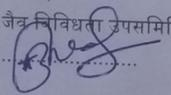 जैव विविधता उपसमि